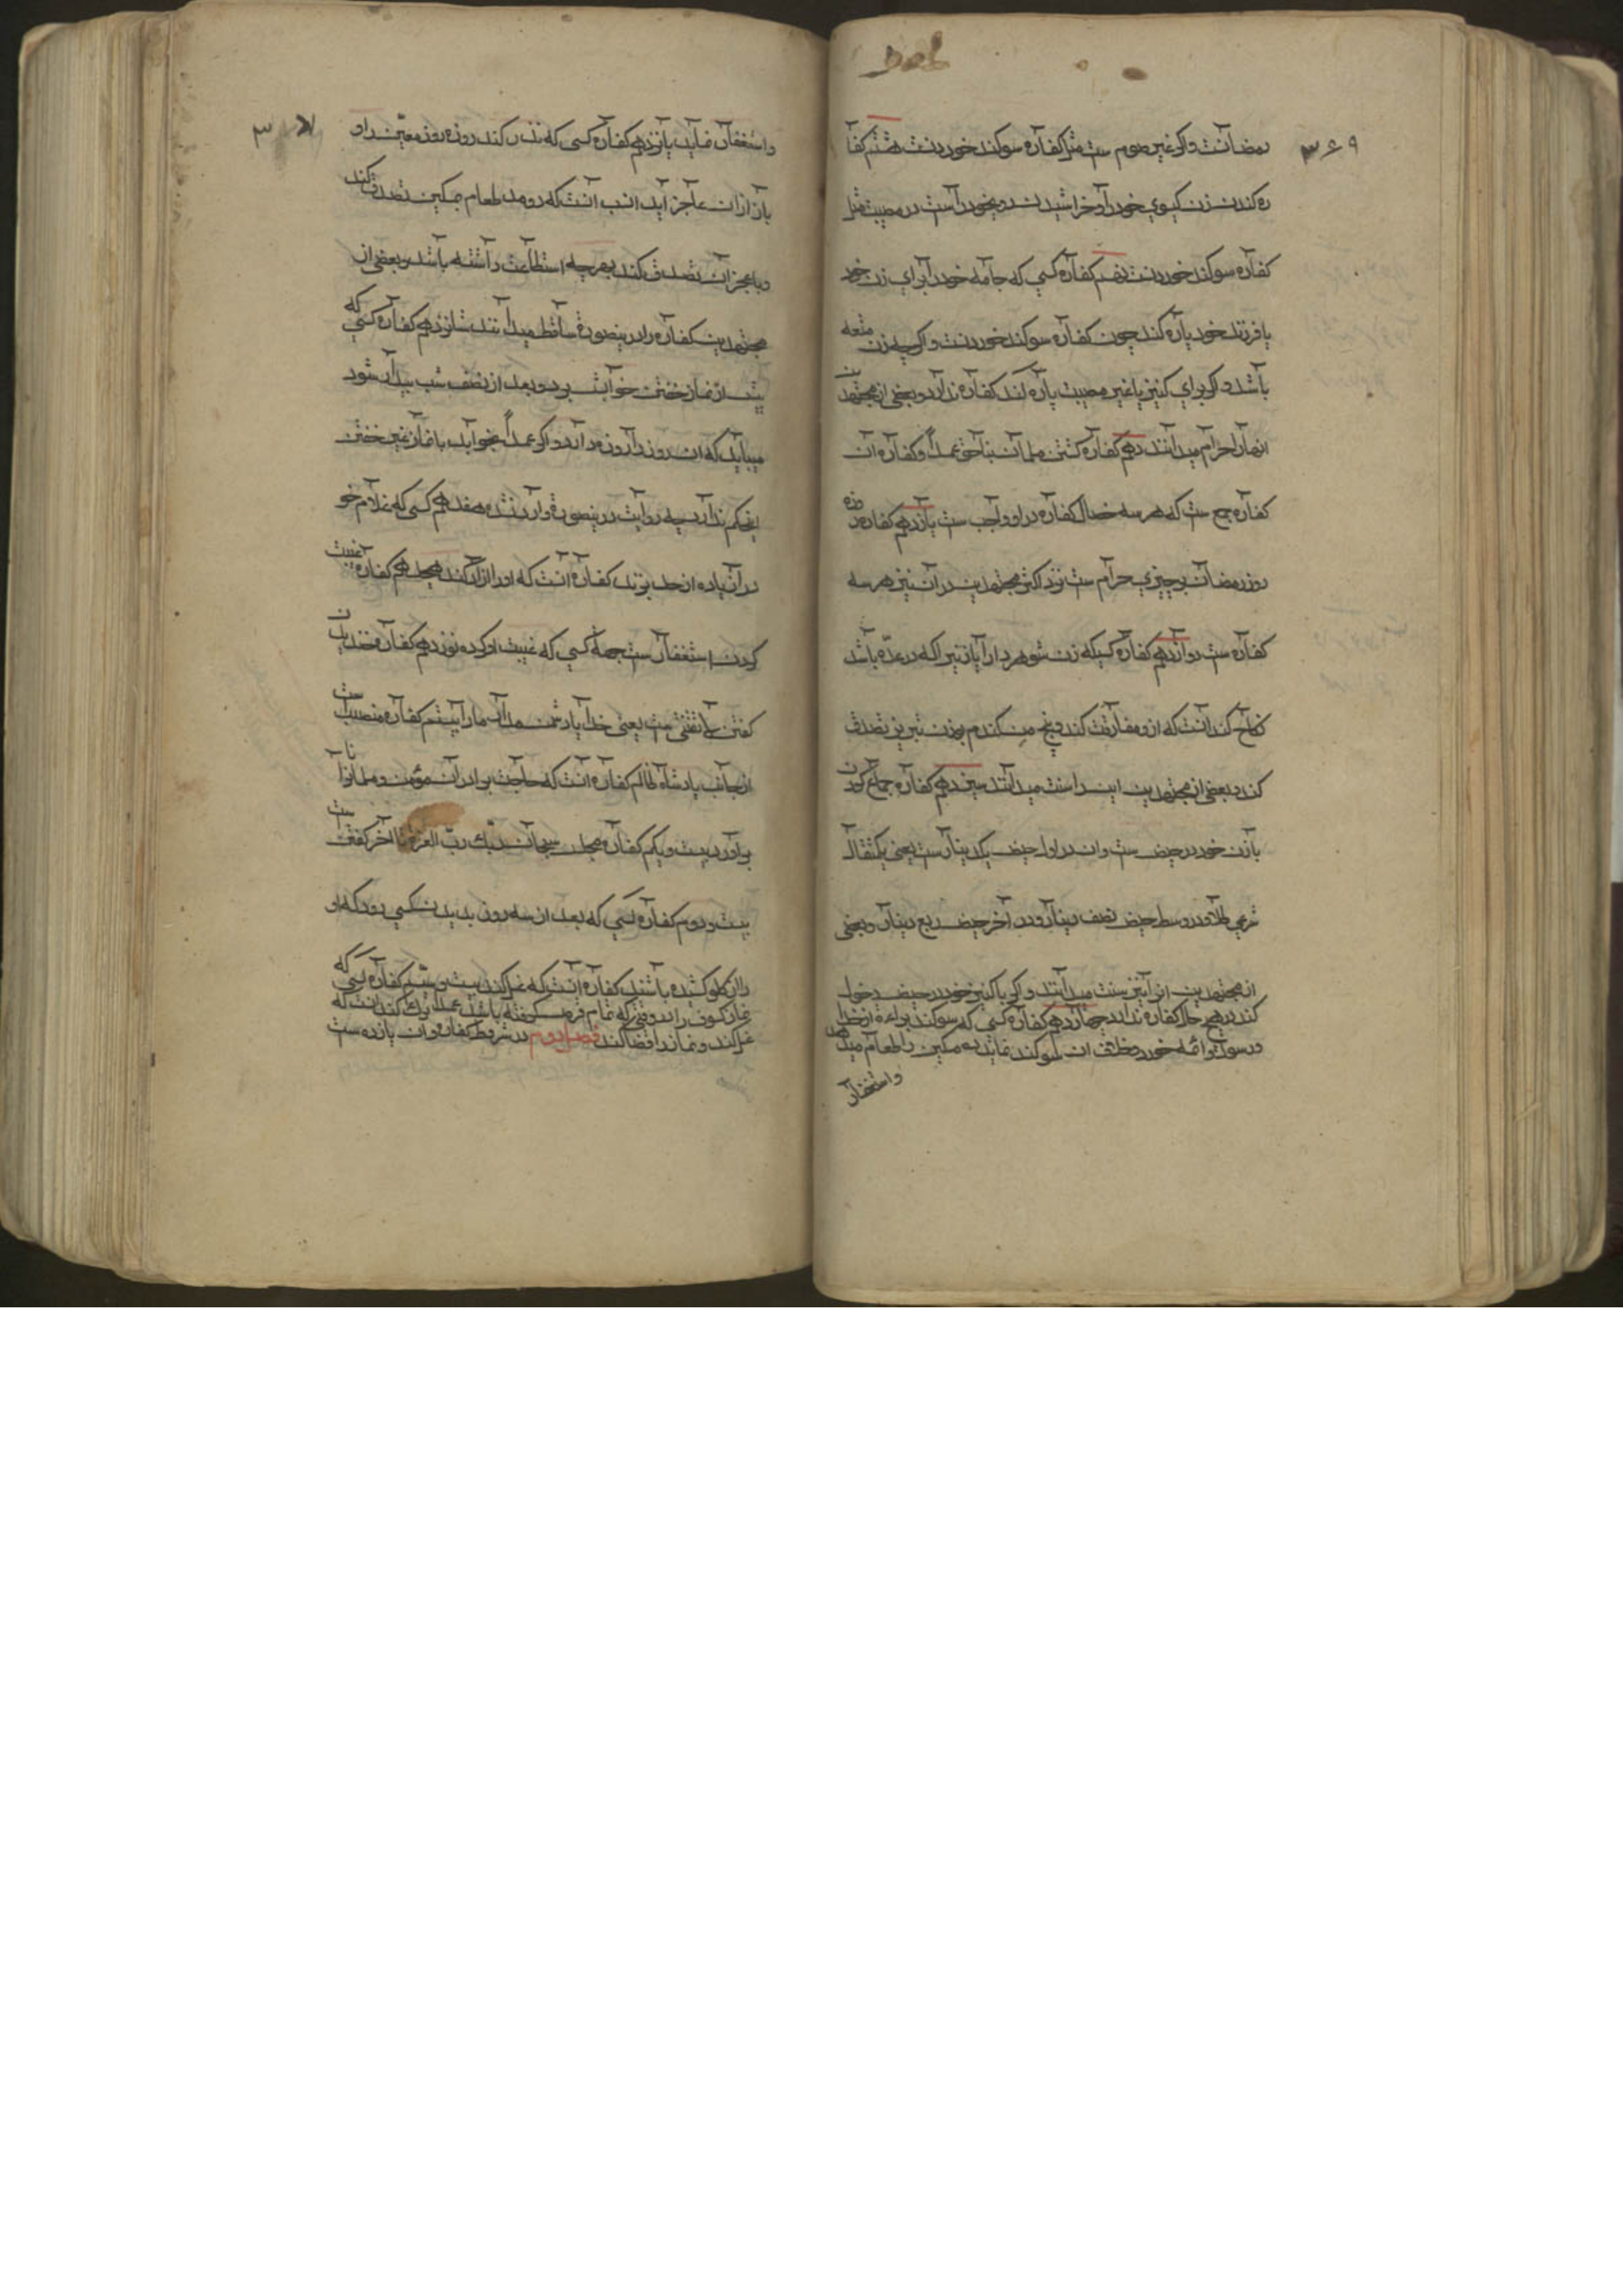 ۳۶۹
رمضانست و اگر غیر صوم ست مثل کفاره سوکند خوردنست هشتم کفا
ره کندن زن کیسوی خود را و خراشیدن روی خود راست در مصیبت مثل
کفاره سوکند خوردنست نهم کفاره کسی که جامه خود را برای زن خود
یا فرزند خود پاره کند چون کفاره سوکند خوردنست و اگرچه زن متعه
باشد و اگر برای کنیز یا غیر مصیبت پاره کند کفاره ندارد و بعضی از مجتهدین
انهارا حرام میدانند دهم کفاره کشتن مسلمانست بناحق عمداً و کفاره ان
کفاره جمع ست که هر سه خصال کفاره در او واجب ست یازدهم کفاره روزه
روز رمضانست بچیزی حرام ست نزد اکثر مجتهدین در آن نیز هر سه
کفاره ست دوازدهم کفاره کسیکه زن شوهر دار را یا زنیرا که در عدّه باشد
نکاح کند آنست که ازو مفارقت کند و پنج من کندم بوزن تبریز تصدق
کند و بعضی از مجتهدین این را سنت میدانند سیزدهم کفاره جماع کردن
با زن خود در حیض ست و ان در اول حیض یکدینارست یعنی یکمثقال
شرعی طلا و در وسط حیض نصف دینار و در آخر حیض ربع دینار و بعضی
از مجتهدین انرا نیز سنت میدانند و اگر با کنیز خود در حیض دخول
کند در هیچ حال کفاره ندارد چهاردهم کفاره کسی که سوکند براءة از خدا
و رسول و ائمه خورد و خلاف ان سوکند نماید ده مسکین را طعام میدهد
و استغفار
۳
واستغفار نماید پانزدهم کفاره کسی که نذر کند روزه روز معیّن را و
باز از ان عاجز آید انسب آنست که دو مد طعام بمسکین تصدق کند
و با عجز ان تصدق کند بهرچه استطاعت داشته باشد و بعضی از
مجتهدین کفاره را درینصورة ساقط میدانند شانزدهم کفاره کسی که
پیش از نماز خفتن خوابش برد و بعد از نصف شب بیدار شود
میباید که ان روز را روزه دارد و اگر عمداً بخوابد یا نماز غیر خفتن
اینحکم ندارد چه روایت درینصورة وارد نشده هفدهم کسی که غلام خو
درا زیاده از حد بزند کفاره آنست که او را ازاد کند هیجدهم کفاره غیبت
کردن استغفار ست بجهة کسی که غیبت او کرده نوزدهم کفاره خندیدن
کفتن لا تمقتنی ست یعنی خدایا دشمن مدار مارا بیستم کفاره منصب
از جانب پادشاه ظالم کفاره آنست که حاجت برادران مؤمن و مسلمانرا
براورد بیست و یکم کفاره مجلس سبحان ربّك ربّ العزة تا آخر کفتن ست
بیست و دوم کفاره کسی که بعد از سه روز بدیدن کسی رود که او
را از کلو کشیده باشند کفاره آنست که غسل کند بیست و سیّم کفاره کسی که
نماز کسوف را در وقتی که تمام قرص کرفته باشد عمداً ترك کند آنست که
غسل کند و نماز را قضا کند فصل دوم در شروط کفاره و ان یازده ست